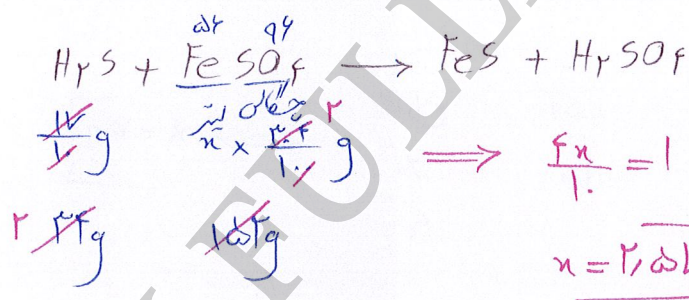 ۵۶ ۹۶
H۲S + FeSO۴ → FeS + H۲SO۴
لیتر چگالی ۲
۱۷/۱۰ g x × ۳۰۴/۱۰ g ⟹ ۴x/۱۰ = ۱
۲ ۳۴g ۱۵۲g x = ۲٫۵L
FULL